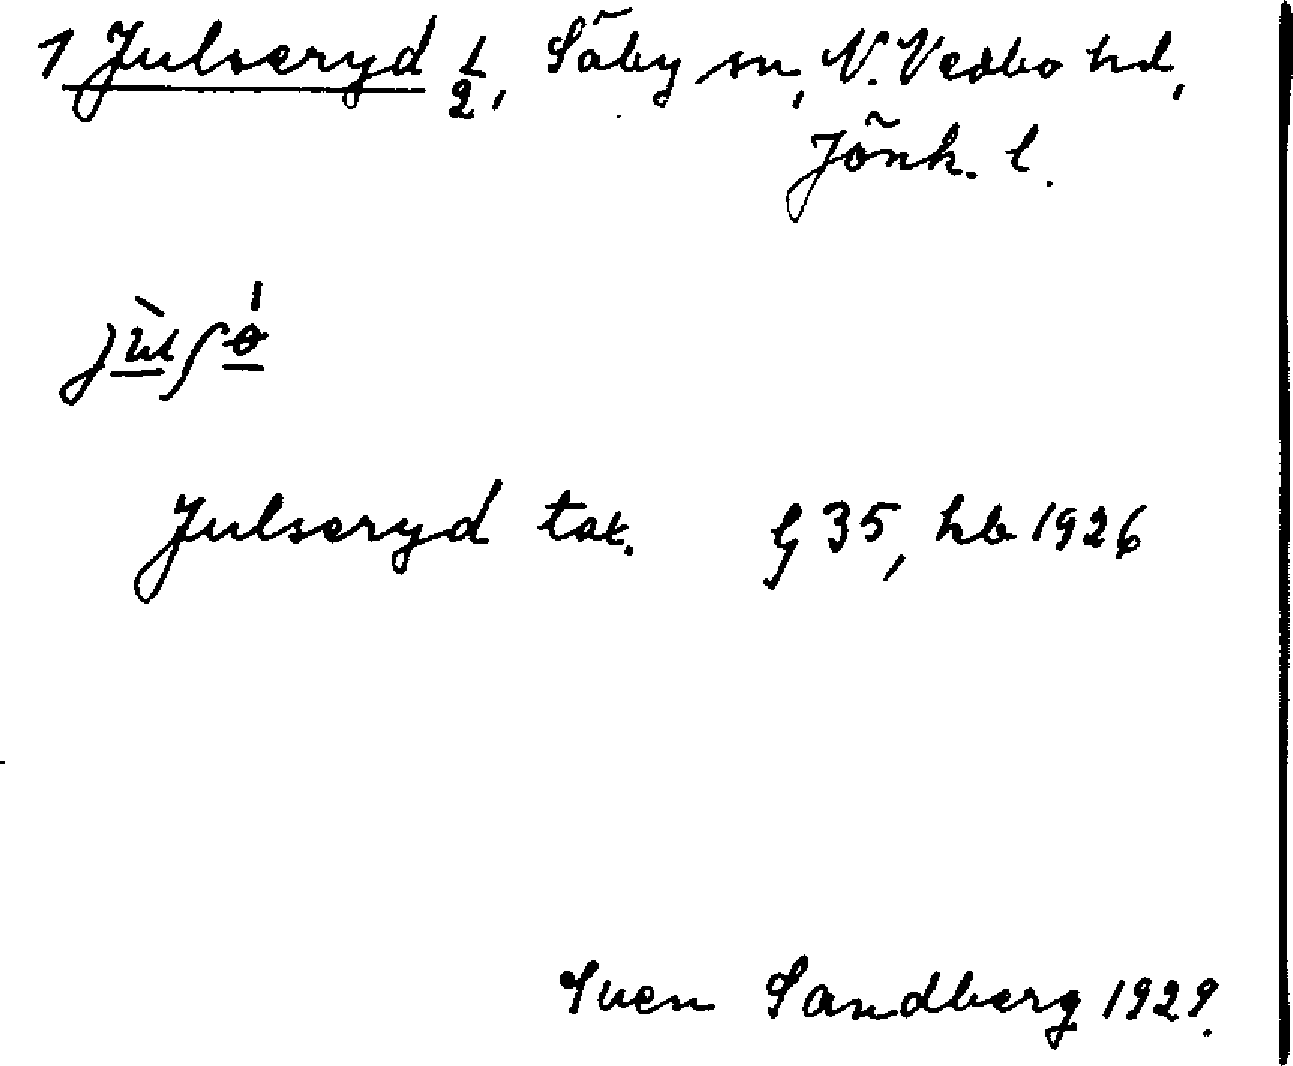 1 Julseryd 1/2, Säby sn, N. Vedbo hd,
Jönk. l.
Julseryd tax. G 35, hb 1926
Sven Sandberg 1929.